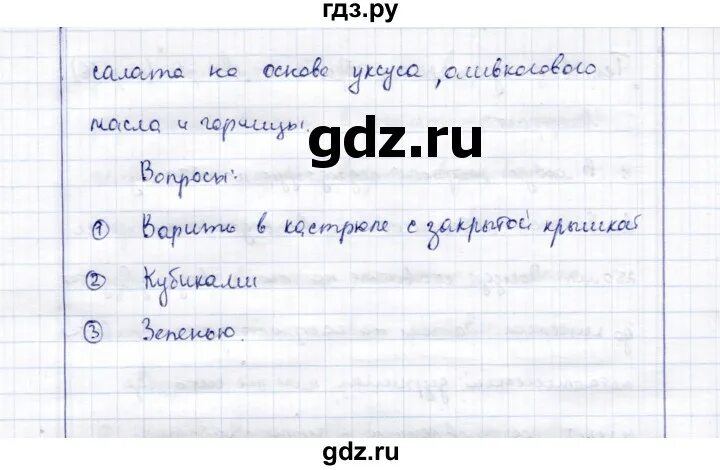 гдз.ру
салата на основе уксуса, оливкового
масла и горчицы.
gdz.ru
Вопросы:
① Варить в кастрюле с закрытой крышкой
② Кубиками
③ Зеленью.
gdz.ru